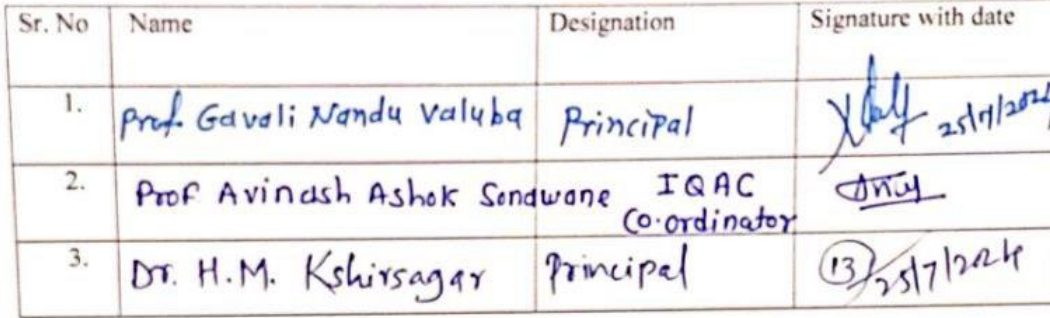 Sr. No Name Designation Signature with date
1. Prof. Gavali Nandu Valuba Principal 25/7/2024
2. Prof Avinash Ashok Sonawane IQAC
Co-ordinator
3. Dr. H.M. Kshirsagar Principal 13 25/7/2024